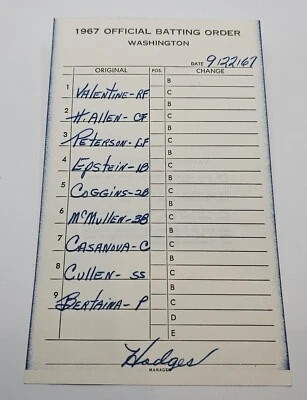 1967 OFFICIAL BATTING ORDER
WASHINGTON
DATE 9/22/67
ORIGINAL POS. CHANGE
B
1 VALENTINE-RF C
B
2 H. ALLEN- CF C
B
3 PETERSON-LF C
B
4 EPSTEIN-1B C
B
5 COGGINS-2B C
B
6 McMULLEN-3B C
B
7 CASANOVA-C C
B
8 CULLEN- SS C
B
9 BERTAINA- P C
D
E
Hodges
MANAGER